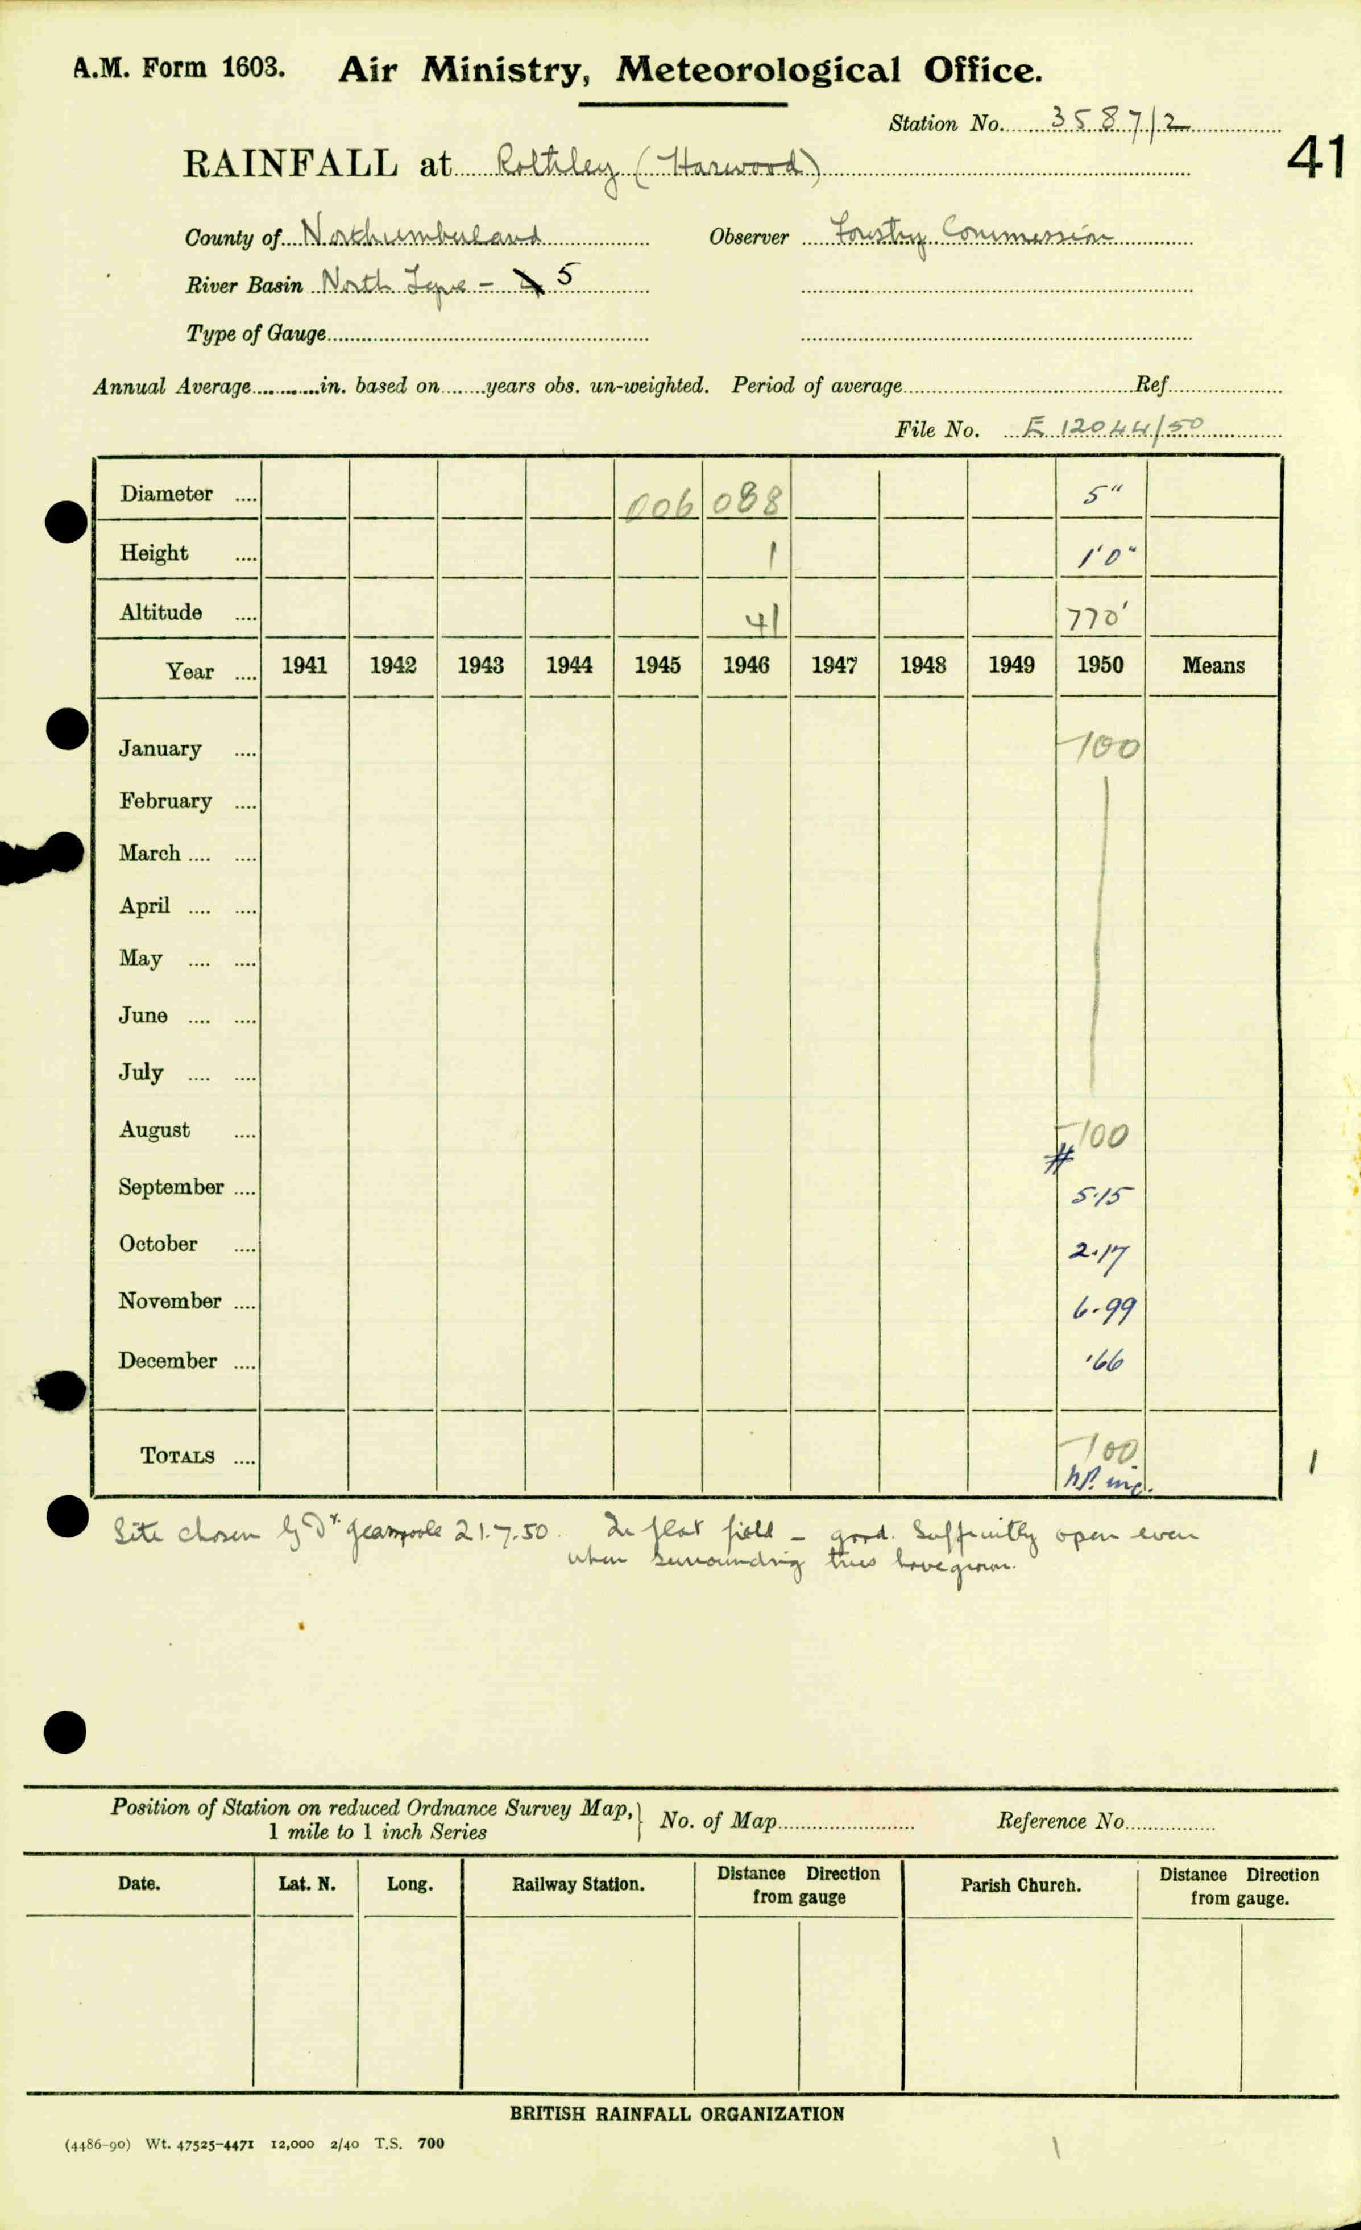 A.M. Form 1603. Air Ministry, Meteorological Office.
Station No. 3587/2
41
RAINFALL at Rothley (Harwood)
County of Northumberland Observer Forestry Commission
River Basin North Tyne - 4 5
Type of Gauge
Annual Average in. based on years obs. un-weighted. Period of average Ref
File No. E 12044/50
Diameter .... 006 088 5"
Height .... 1 1'0"
Altitude .... 41 770'
Year .... 1941 1942 1943 1944 1945 1946 1947 1948 1949 1950 Means
January .... -100
February ....
March .... ....
April .... ....
May .... ....
June .... ....
July .... ....
August .... -100
#
September .... 5.15
October .... 2.17
November .... 6.99
December .... .66
TOTALS .... -100
1
Site chosen by Dr. Glasspoole 21.7.50. In flat field - good. Sufficiently open even
when surrounding trees have grown.
Position of Station on reduced Ordnance Survey Map, } No. of Map Reference No.
1 mile to 1 inch Series
Date. Lat. N. Long. Railway Station. Distance Direction from gauge Parish Church. Distance Direction from gauge.
BRITISH RAINFALL ORGANIZATION
(4486-90) Wt. 47525-4471 12,000 2/40 T.S. 700